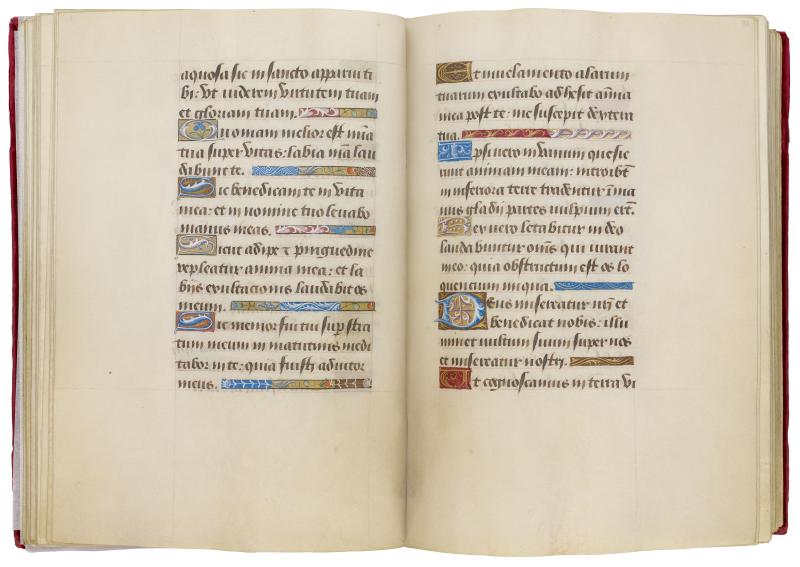 aquosa sic in sancto apparui ti
bi: vt viderem virtutem tuam
et gloriam tuam.
Quoniam melior est mĩa
tua super vitas: labia mẽa lau
dabunt te.
Sic benedicam te in vita
mea: et in nomine tuo levabo
manus meas.
Sicut adipe ⁊ pinguedine
repleatur anima mea: et la
bijs exultacionis laudabit os
meum.
Si memor fui tui sup̃ stra
tum meum in matutinis medi
tabor in te: quia fuisti adiutor
meus.
Et in velamento alarum
tuarum exultabo adhesit aĩma
mea post te: me suscepit dẽxtera
tua.
Ipsi vero in vanum quesie
runt animam meam: introibũt
in inferiora terre tradentur ĩ ma
nus gladii partes vulpium erũt.
Rex vero letabitur in deo
laudabuntur om̃s qui iurant
in eo: quia obstructum est os lo
quencium iniqua.
Deus misereatur nr̃i et
benedicat nobis: illu
minet vultum suum super nos
et misereatur nostri.
Ut cognoscamus in terra vi